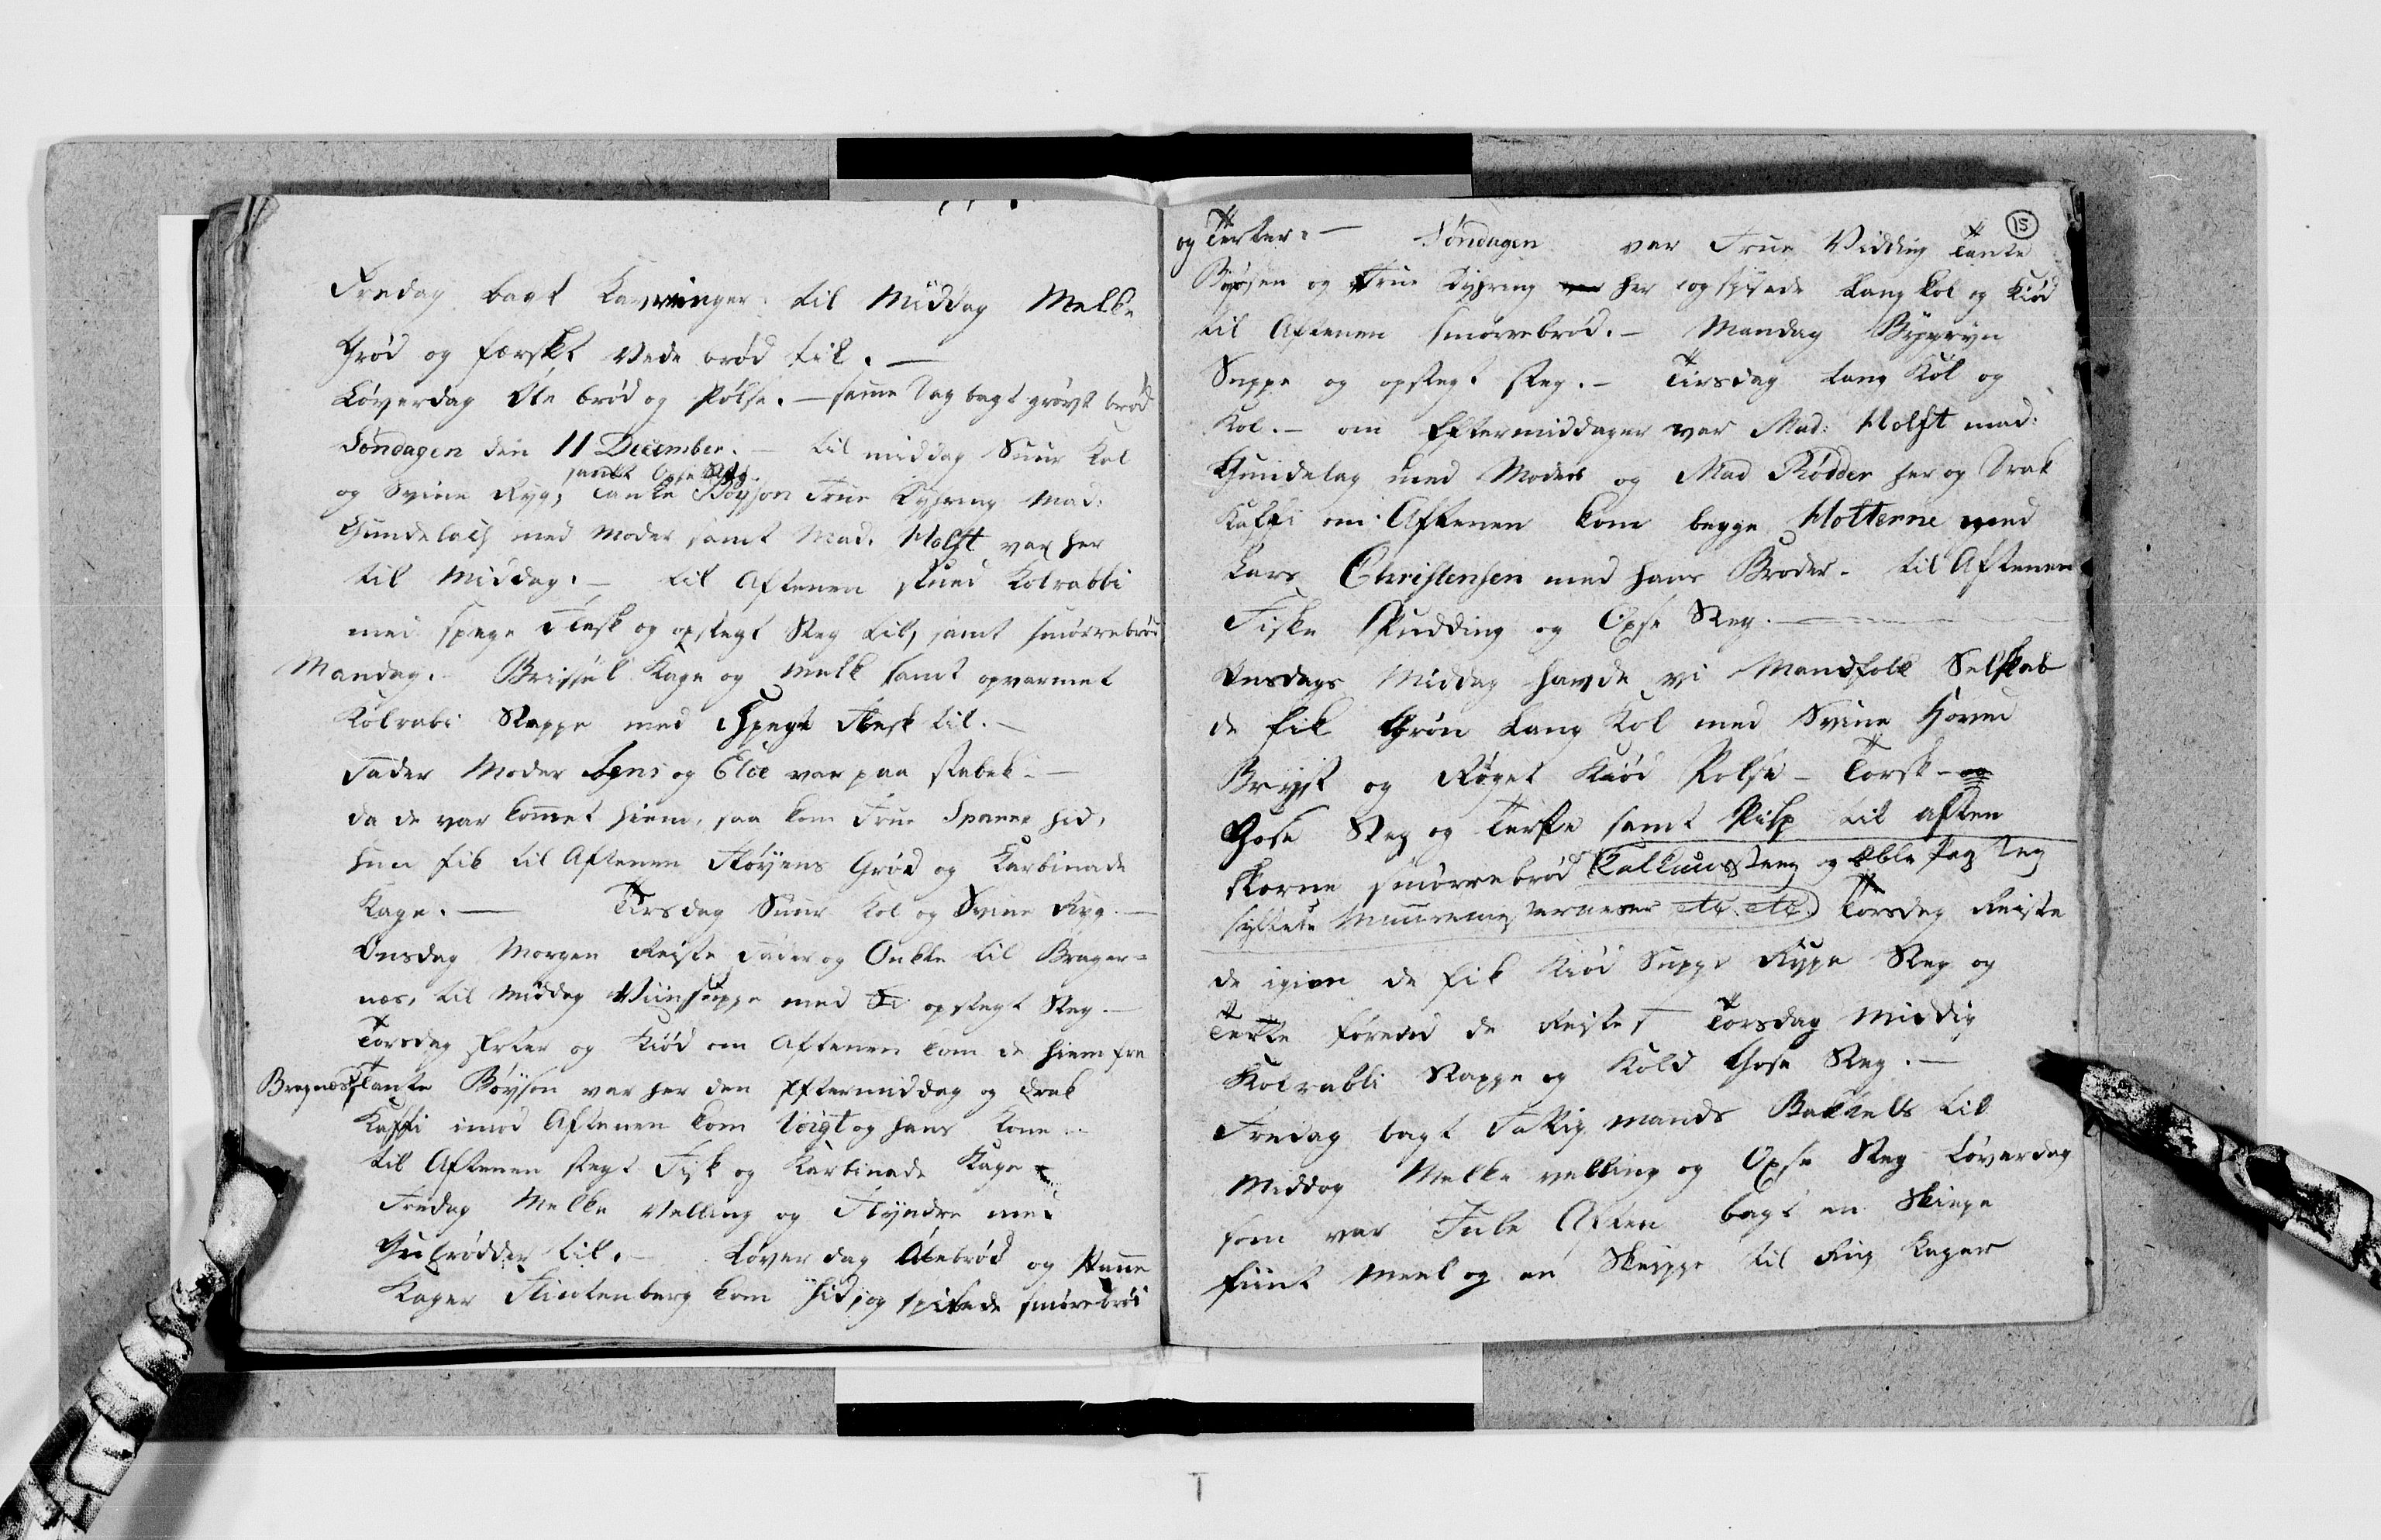 Fredag bagt Kavringer til Middag Melke
Grød og færskt Vede brød til. —
Løverdag Øle brød og Pølse. — samme Dag bagt grovt brød
Søndagen den 11 December. — til middag Suur Kol
samt Oxe Steg
og Svine Ryg, Tante Bøyson Frue Dyhreng Mad:
Gundelach med Moder samt Mad. Holst var her
til Middag. — til Aftenen stued Kolrabbi
med spege Flesk og opstegt Steg til, samt smørrebrød
Mandag. Kage og Melk samt opvarmet
Kolrabi Stappe med Speget Flesk til. —
Fader Moder og Else var paa Stabek. —
da de var kommet hiem, saa kom Frue hid,
hun fik til Aftenen Fløyens Grød og Karbinade
Kage. — Tirsdag Suur Kol og Svine Ryg. —
Onsdag Morgen Reiste Fader og Onkle til Brager=
næs, til Middag Viinsuppe med opstegt Steg. —
Torsdag Erter og Kiød om Aftenen kom de hiem fra
Bragnæs, Tante Bøyson var her den Eftermiddag og drak
Kaffi imod Aftenen kom Voigt og hans Kone —
til Aftenen stegt Fisk og Karbinade Kage
Fredag Melke Velling og Flyndre med
Gulrødder til. — Løverdag Ølebrød og Panne
Kager kom hid og spisede smørebrød
15
og Terter. — Søndagen var Frue Tante
Bøysen og Frue Dyhreng her og spisede Lang kol og Kiød
til Aftenen smørrebrød. — Mandag Byggryn
Suppe og opstegt Steg. — Tirsdag Lang Kol og
Kol. — om Eftermiddagen var Mad: Holst mad:
Gundelag med Moder og Mad Rødder her og Drak
Kaffi om Aftenen kom begge Holterne med
Lars Christensen med hans Broder. til Aftenen
Fiske Pudding og Oxe Steg. —
Onsdags Middag havde vi Mandfolk Selskab
de fik Grøn Lang Kol med Svine Hoved
Bryst og Røget Kiød Polse — Torsk — og
Gose Steg og Terte samt til aften
skorne smørrebrød Kalkunsteeg og Æble
syltede etc. etc. Torsdag Reiste
de igien de fik Kiød Suppe Rype Steg og
Terte førend de Reiste, Torsdag Middag
Kolrabbi Stappe og Kold Gose Steg. —
Fredag bagt Fattig mands Bakkels til
Middag Melke velling og Oxe Steg Løverdag
som var Jule Aften bagt en Skieppe
fiint Meel og en Skieppe til Kager